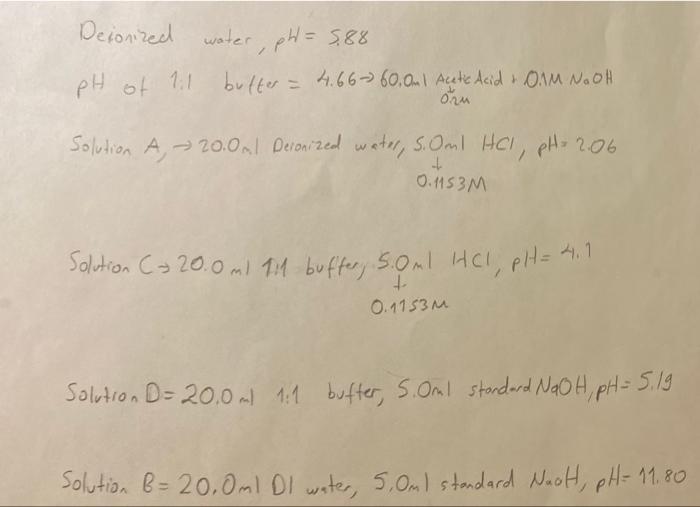 Deionized water, pH = 5.88
pH of 1:1 buffer = 4.66 → 60.0ml Acetic Acid + 0.1M NaOH
0.1M
Solution A, → 20.0ml Deionized water, 5.0ml HCl, pH = 2.06
0.1153M
Solution C → 20.0 ml 1:1 buffer, 5.0ml HCl, pH = 4.1
0.1153M
Solution D = 20.0 ml 1:1 buffer, 5.0ml standard NaOH, pH = 5.19
Solution B = 20.0ml DI water, 5.0ml standard NaOH, pH = 11.80